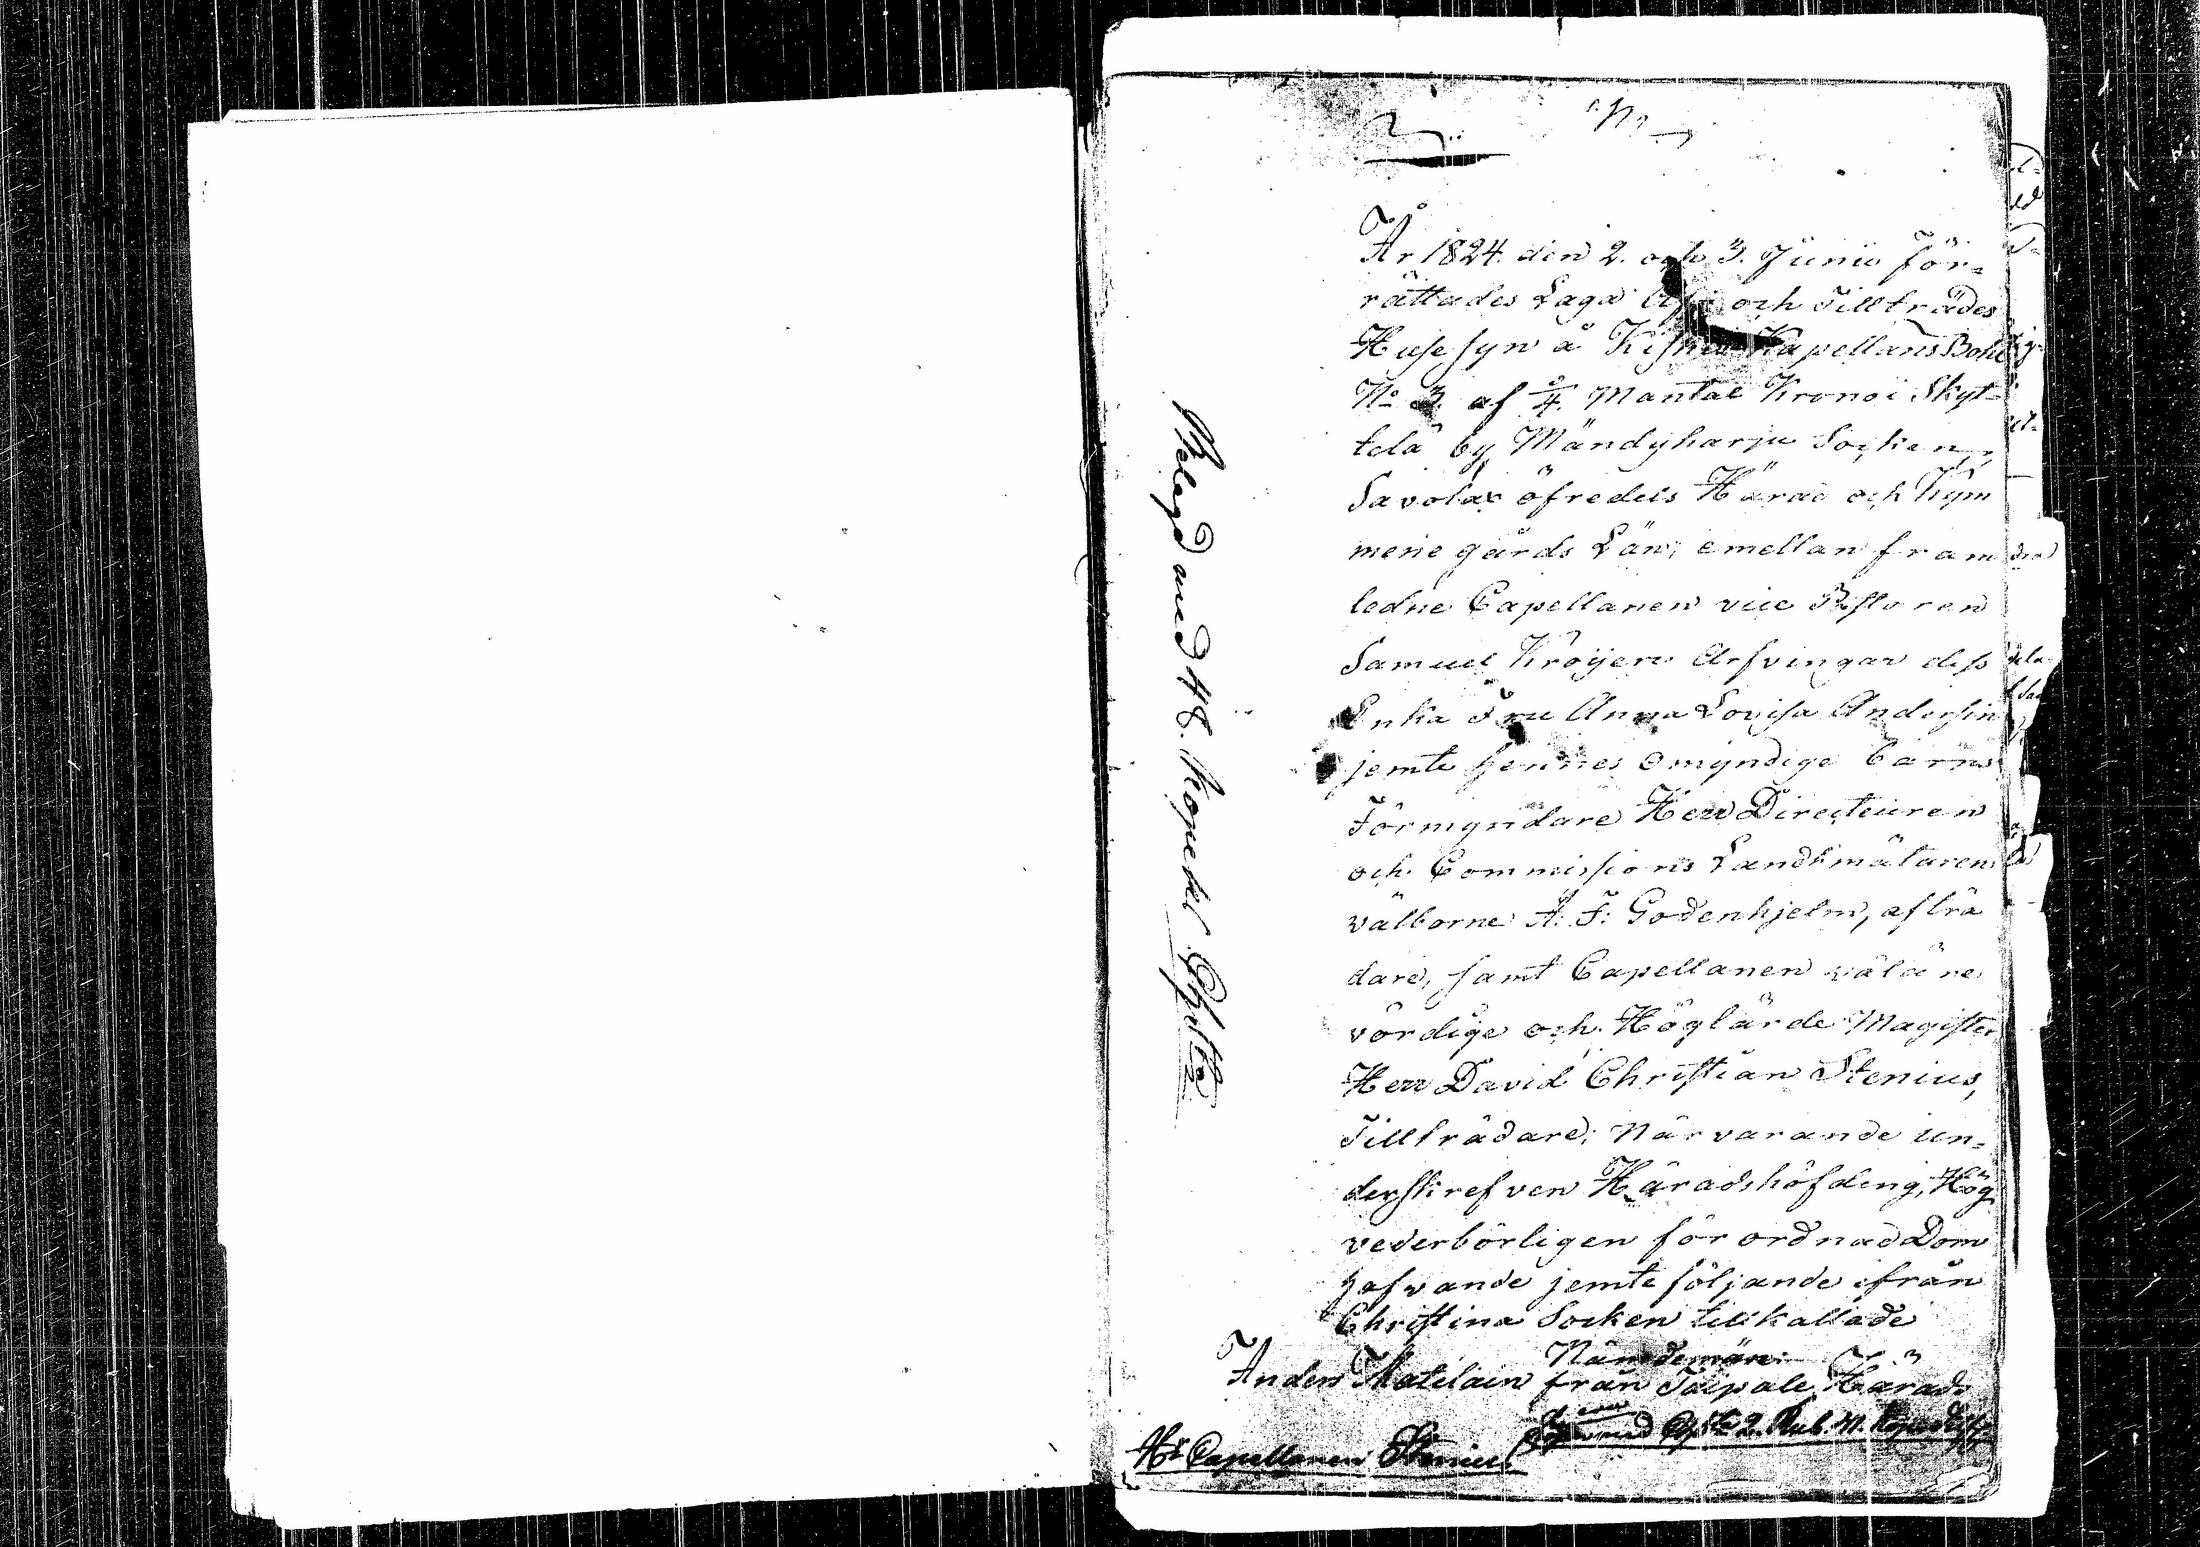 År 1824. den 2. och 3. Junii för=
rättades Laga Af= och Tillträdes
Husesyn å Kapellans Bohl
No 3. af 3/4. Mantal Krono i Skyt=
telä by Mändyharju Socken,
Savolax öfredels Härad och Kym
menegårds Län; emellan fram
ledne Capellanen vice Pastoren
Samuel Kröijers Arfvingar dess
Enka Fru Anna Lovisa Andersin
jemte hennes omyndige Barns
Förmyndare Herr Directeuren
och Commissions Landtmätaren
välborne A: F: Godenhjelm, afträ
dare, samt Capellanen väläre
vördige och Höglärde Magister
Herr David Christian Stenius,
Tillträdare; Närvarande un=
derskrefven Häradshöfding, Hög
vederbörligen förordnad Dom
hafvande jemte följande ifrån
Christina Socken tillkallade
Nämndemän:
Anders Matilain från Taipale Härads
Hr Capellanen Stenius
Belagd med 48. Kopek